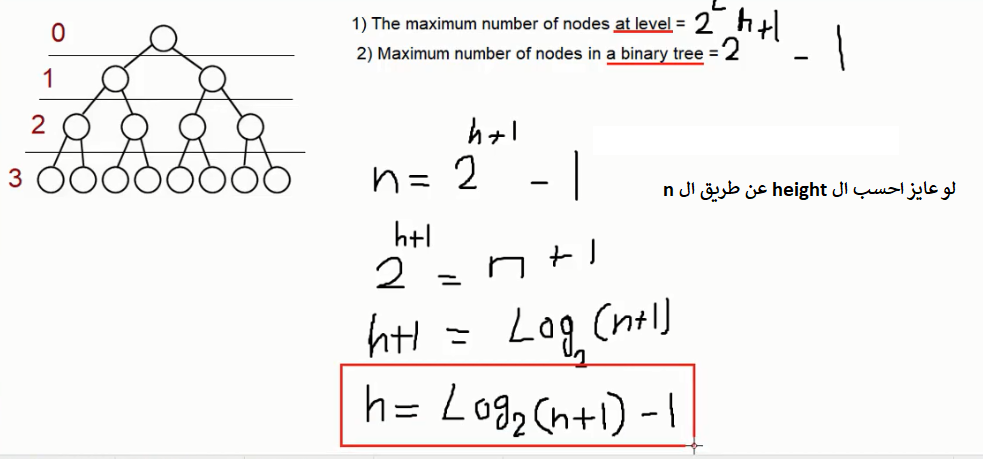 0
1
2
3
1) The maximum number of nodes at level = 2^L
2) Maximum number of nodes in a binary tree = 2^h+1 - 1
n = 2^h+1 - 1
لو عايز احسب ال height عن طريق ال n
2^h+1 = n + 1
h+1 = Log₂(n+1)
h = Log₂(n+1) - 1